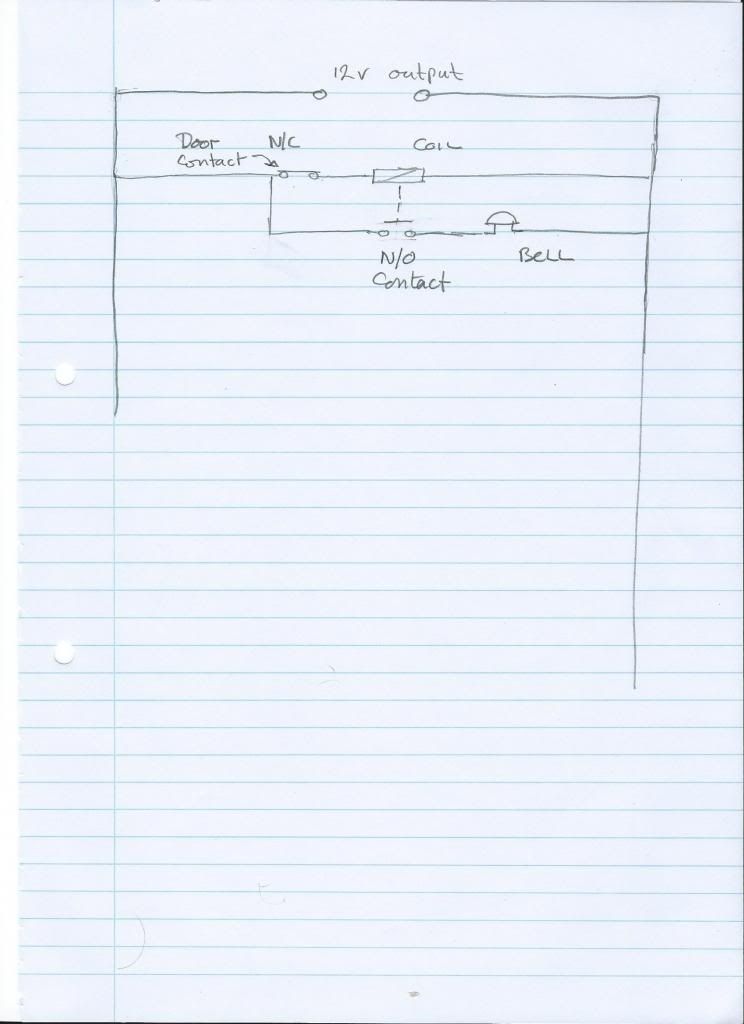 12v output
Door N/C
Contact
COIL
N/O
Contact
BELL